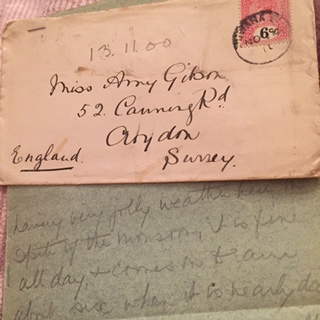 13.11.00
6
NO
Miss Amy Gibson
52. Canning Rd
Croydon
England.
Surrey.
having very jolly weather here, in
spite of the monsoon, it is fine
all day, & comes on to rain
about six when it is nearly da